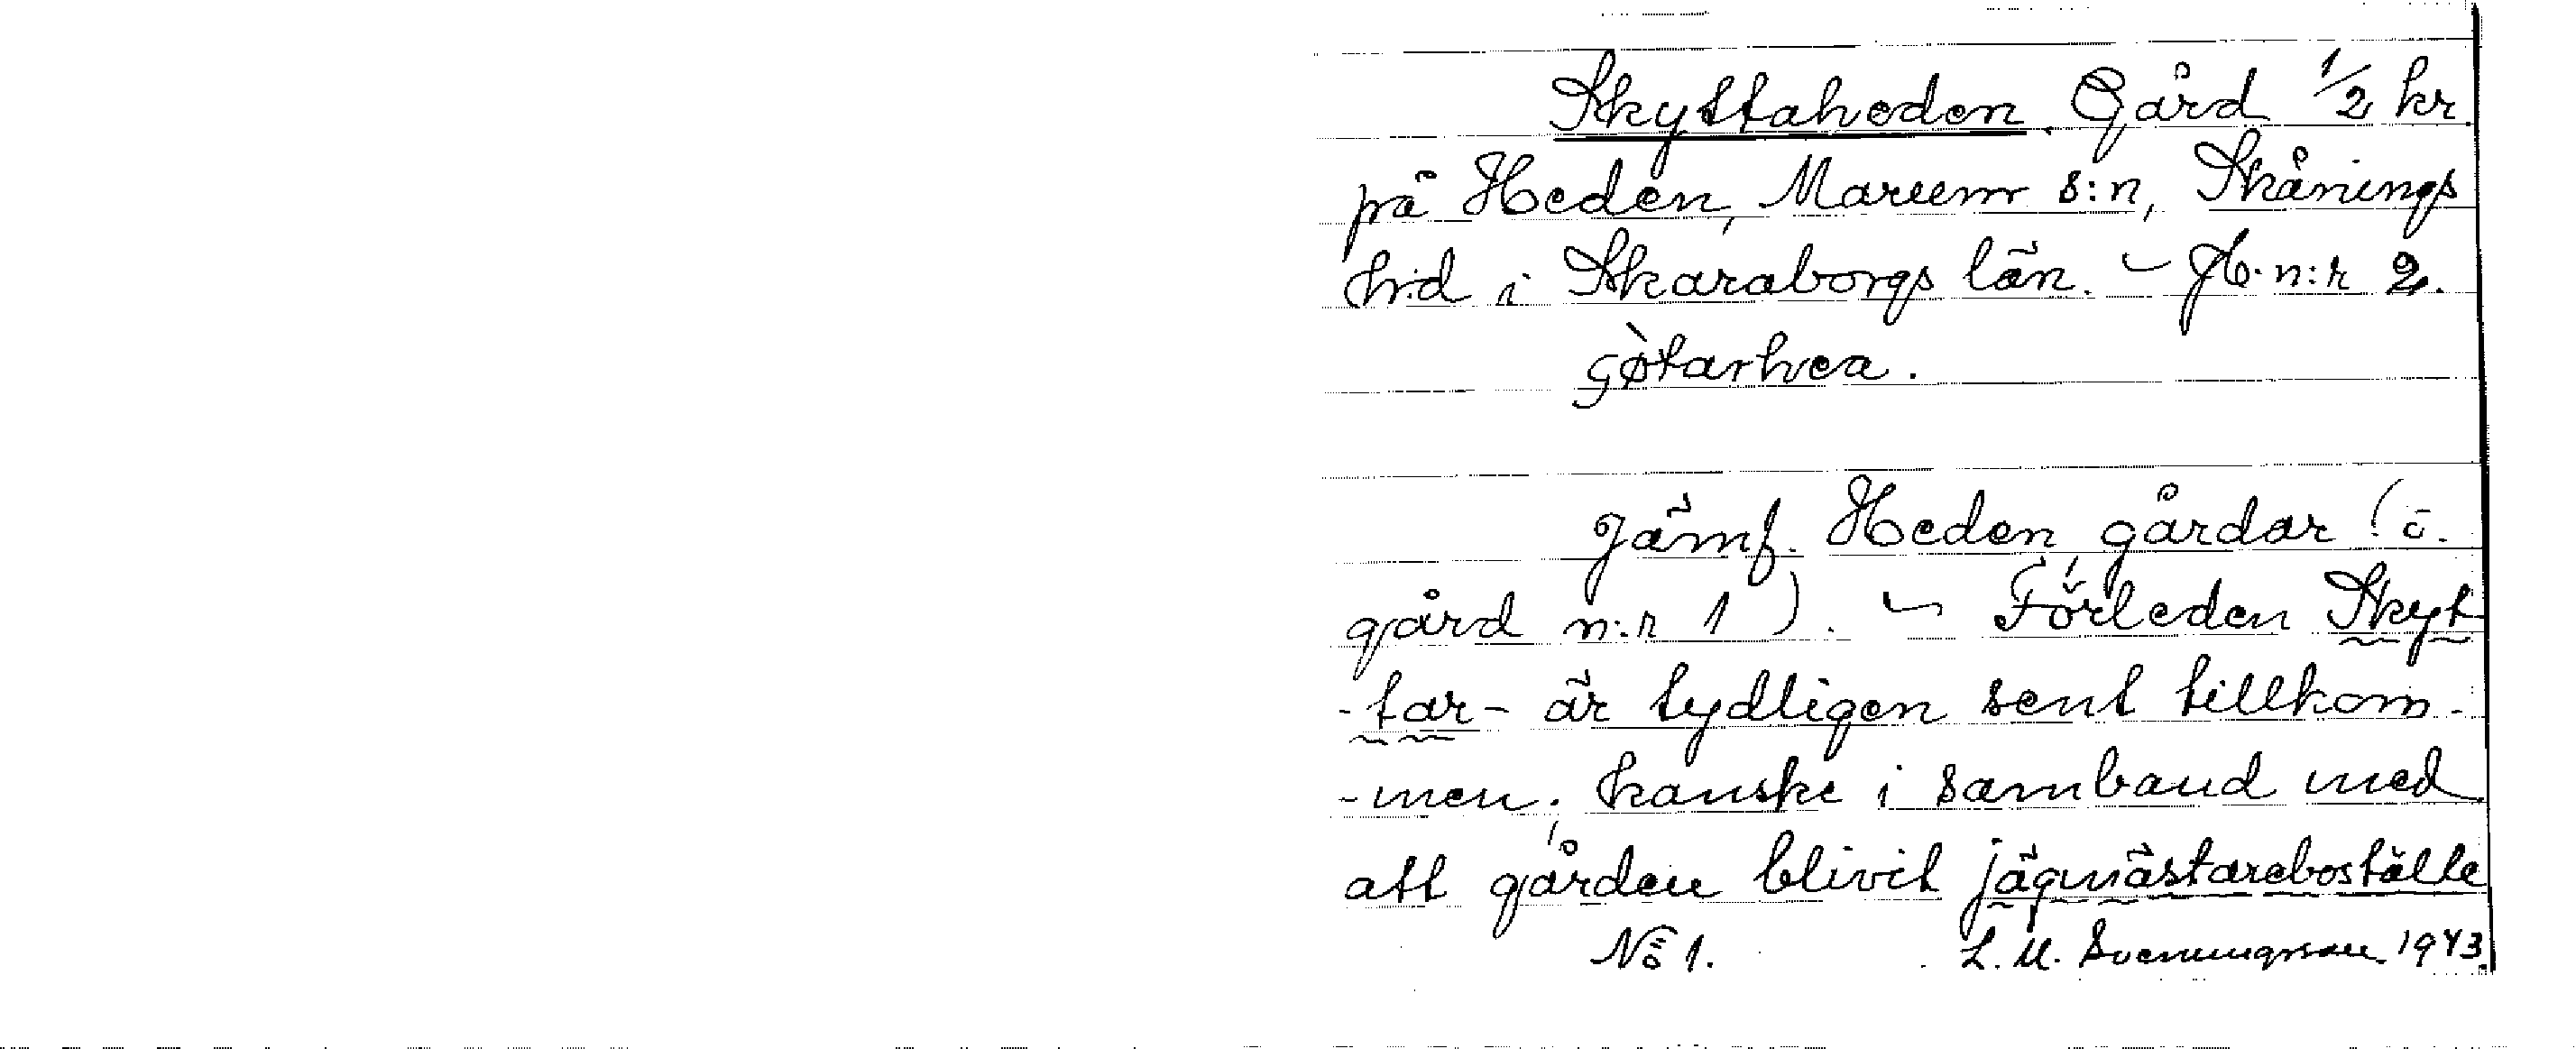 Skyttaheden. Gård 1/2 kr.
på Heden, Marum s:n, Skånings
h:d i Skaraborgs län. – Jb. n:r 2.
Jämf. Heden, gårdar (ö.
gård n:r 1). – Förleden Skyt
-tar- är tydligen sent tillkom-
-men; kanske i samband med
att gården blivit jägmästareboställe
No 1. L. M. Svenungsson. 1943.